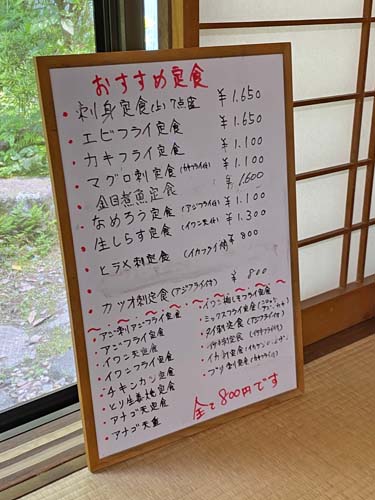 おすすめ定食
・刺身定食(上)7点盛 ¥1.650
・エビフライ定食 ¥1.650
・カキフライ定食 ¥1.100
・マグロ刺定食(カキフライ付) ¥1.100
・金目煮魚定食 ¥1.600
・なめろう定食(アジフライ付) ¥1.100
・生しらす定食(イワシ天付) ¥1.300
・ヒラメ刺定食(イカフライ付) ¥800
・カツオ刺定食(アジフライ付) ¥800
・アジ刺しアジフライ定食
・アジフライ定食
・イワシ天定食
・イワシフライ定食
・チキンカツ定食
・とり生姜焼定食
・アナゴ天定食
・アナゴ天重
・イワシ梅しそフライ定食
・ミックスフライ定食
・タイ刺定食(アジフライ付)
・イカ刺定食
・ブリ刺定食(カキフライ付)
全て800円です